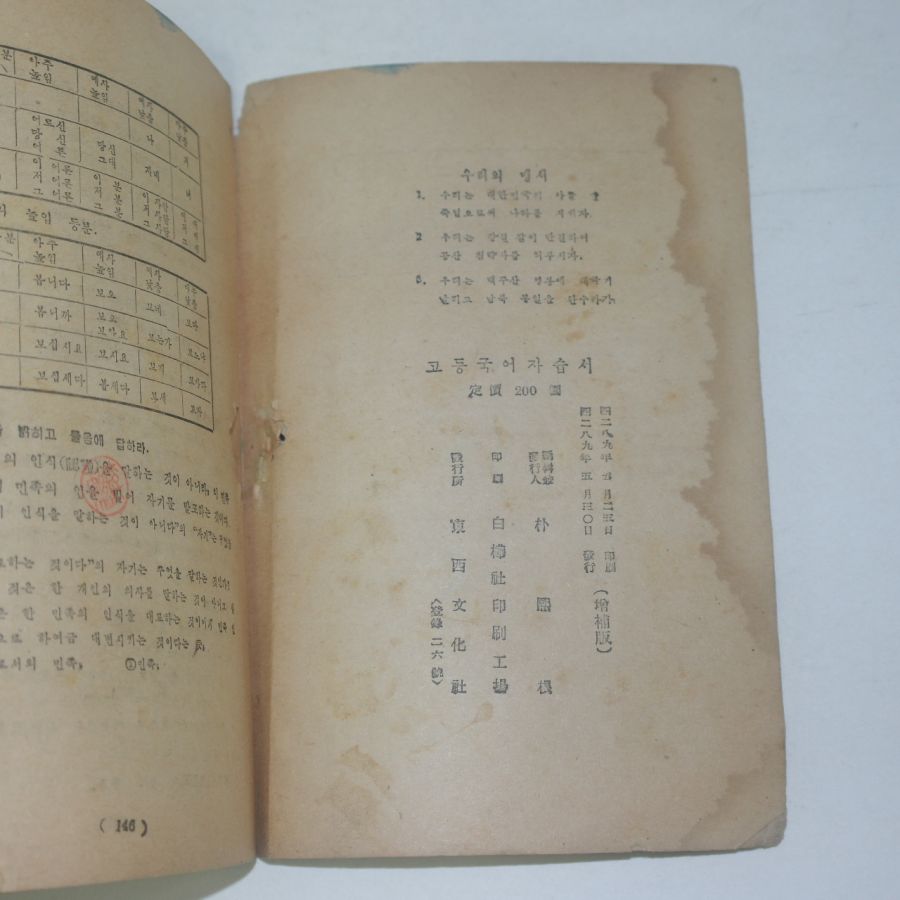 아주
높임
예사
높임
예사
낮춤
아주
낮춤
어르신
당신
어른
당신
그대
나
저
자네
너
이 어른
저 어른
그 어른
이 분
저 분
그 분
높임 등분.
아주
높임
예사
높임
예사
낮춤
아주
낮춤
봅니다
보오
보네
보다
봅니까
보오
보아요
보는가
보느냐
보십시요
보시요
보게
보아라
보십세다
봅세다
보세
보자
밝히고 물음에 답하라.
의 인식(認識)을 말하는 것이 아니며,
민족의 인을 빌어 자기를 발표하는 것이며,
인식을 말하는 것이 아니다”의 “자기”는
하는 것이다”의 자기는 무엇을 말하는 것인가?
것은 한 개인의 의사를 말하는 것이 아니고
은 한 민족의 인식을 대표하는 것이기에 민족
으로 하여금 대변시키는 것이다는 뜻,
로서의 민족, ②민족,
( 146 )
우리의 맹세
1. 우리는 대한민국의 아들 딸
죽엄으로써 나라를 지키자.
2 우리는 강철 같이 단결하여
공산 침략자를 쳐부시자.
3. 우리는 백두산 영봉에 태극기
날리고 남북 통일을 완수하자.
고등국어자습서
定價 200 圜
四二八九年 月二五日 印刷
四二八九年 五月三〇日 發行
(增補版)
編輯兼
發行人 朴 熙
印刷 白楊社印刷工場
發行所 東西文化社
<登錄 二六號>